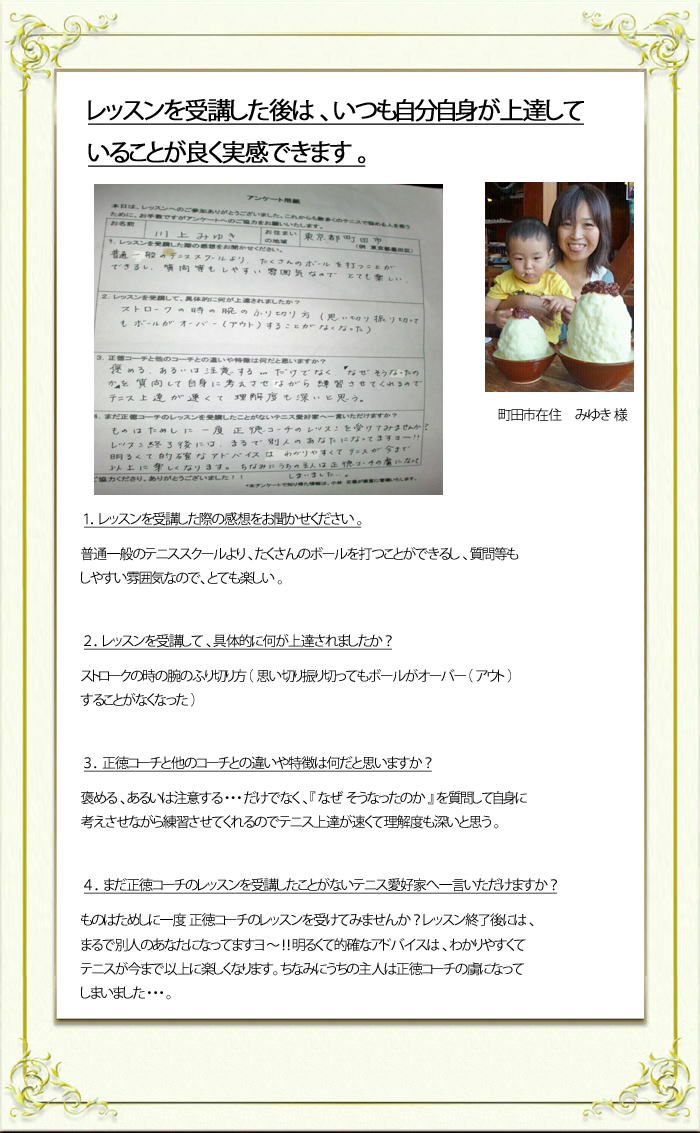 レッスンを受講した後は、いつも自分自身が上達して
いることが良く実感できます。
アンケート用紙
本日は、レッスンへのご参加ありがとうございました。これからも数多くのテニスで悩める人を救う
ために、お手数ですがアンケートへのご協力をお願いいたします。
お名前 川上みゆき お住まいの地域 東京都町田市
(例 東京都墨田区)
1. レッスンを受講した際の感想をお聞かせください。
普通一般のテニススクールより、たくさんのボールを打つことが
できるし、質問等もしやすい雰囲気なので とても楽しい。
2. レッスンを受講して、具体的に何が上達されましたか?
ストロークの時の腕のふり切り方(思い切り振り切って
もボールがオーバー(アウト)することがなくなった)
3. 正徳コーチと他のコーチとの違いや特徴は何だと思いますか?
褒める、あるいは注意する…だけでなく、『なぜそうなったの
か』を質問して自身に考えさせながら練習させてくれるので
テニス上達が速くて理解度も深いと思う。
4. まだ正徳コーチのレッスンを受講したことがないテニス愛好家へ一言いただけますか?
ものはためしに一度 正徳コーチのレッスンを受けてみませんか?
レッスン終了後には、まるで別人のあなたになってますヨー!!
明るくて的確なアドバイスは わかりやすくてテニスが今まで
以上に楽しくなります。ちなみにうちの主人は正徳コーチの虜になって
しまいました…。
ご協力くださり、ありがとうございました!!
町田市在住 みゆき様
1. レッスンを受講した際の感想をお聞かせください。
普通一般のテニススクールより、たくさんのボールを打つことができるし、質問等も
しやすい雰囲気なので、とても楽しい。
2. レッスンを受講して、具体的に何が上達されましたか?
ストロークの時の腕のふり切り方(思い切り振り切ってもボールがオーバー(アウト)
することがなくなった)
3. 正徳コーチと他のコーチとの違いや特徴は何だと思いますか?
褒める、あるいは注意する・・・だけでなく、『なぜ そうなったのか』を質問して自身に
考えさせながら練習させてくれるのでテニス上達が速くて理解度も深いと思う。
4. まだ正徳コーチのレッスンを受講したことがないテニス愛好家へ一言いただけますか?
ものはためしに一度 正徳コーチのレッスンを受けてみませんか?レッスン終了後には、
まるで別人のあなたになってますヨ〜!!明るくて的確なアドバイスは、わかりやすくて
テニスが今まで以上に楽しくなります。ちなみにうちの主人は正徳コーチの虜になって
しまいました・・・。